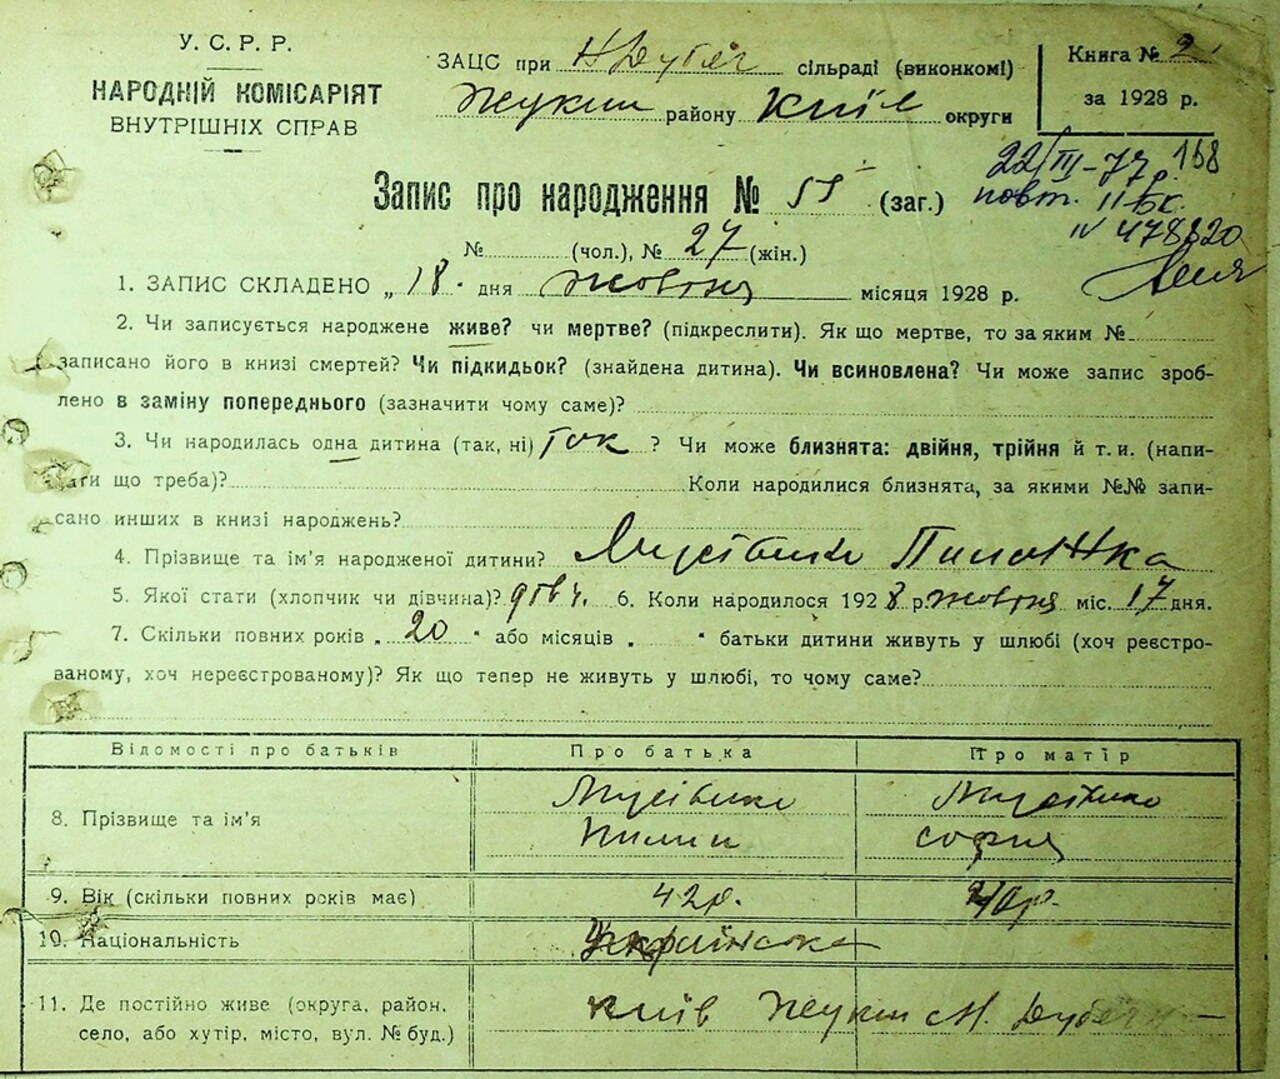 У. С. Р. Р.
НАРОДНІЙ КОМІСАРІЯТ
ВНУТРІШНІХ СПРАВ
ЗАЦС при Н Дубеч сільраді (виконкомі)
Жукин району Київ округи
Книга № 2
за 1928 р.
22/III-77р. 168
повт. II бк.
IV 478820
Запис про народження № 55 (заг.)
№ (чол.), № 27 (жін.)
1. ЗАПИС СКЛАДЕНО „18" дня жовтня місяця 1928 р.
2. Чи записується народжене живе? чи мертве? (підкреслити). Як що мертве, то за яким №
записано його в книзі смертей? Чи підкидьок? (знайдена дитина). Чи всиновлена? Чи може запис зроб-
лено в заміну попереднього (зазначити чому саме)?
3. Чи народилась одна дитина (так, ні) так ? Чи може близнята: двійня, трійня й т. и. (напи-
сати що треба)? Коли народилися близнята, за якими №№ запи-
сано инших в книзі народжень?
4. Прізвище та ім'я народженої дитини? Мусієнко
5. Якої стати (хлопчик чи дівчина)? дівч. 6. Коли народилося 1928 р. жовтня міс. 17 дня.
7. Скільки повних років „20" або місяців „ " батьки дитини живуть у шлюбі (хоч реєстро-
ваному, хоч нереєстрованому)? Як що тепер не живуть у шлюбі, то чому саме?
Відомості про батьків Про батька Про матір
8. Прізвище та ім'я Мусієнко Мусієнко
Пилип Софія
9. Вік (скільки повних років має) 42р. 40р.
10. Національність Українська
11. Де постійно живе (округа, район,
село, або хутір, місто, вул. № буд.) Київ Жукин с Н. Дубечня